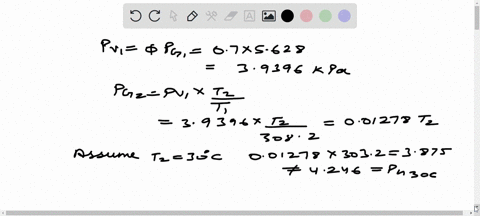 Pv₁ = ϕ PG₁ = 0.7 × 5.628
= 3.9396 kPa
PG₂ = Pv₁ × T₂/T₁
= 3.9396 × T₂/308.2 = 0.01278 T₂
Assume T₂ = 30°C 0.01278 × 303.2 = 3.875
≠ 4.246 = PG 30C